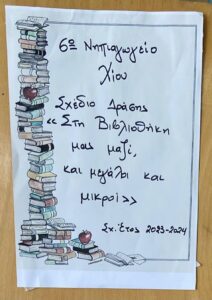 6ο Νηπιαγωγείο
Χίου
Σχέδιο Δράσης
«Στη Βιβλιοθήκη
μας μαζί,
και μεγάλοι και
μικροί»
Σχ. Έτος 2023-2024